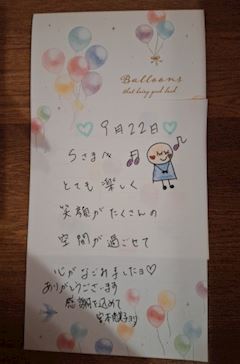 Balloons
that bring good luck
♡9月22日♡
Sさま♪
とても楽しく
笑顔がたくさんの
空間が過ごせて
心がなごれましたヨ♡
ありがとうございます
感謝を込めて
宮本
ヨリ